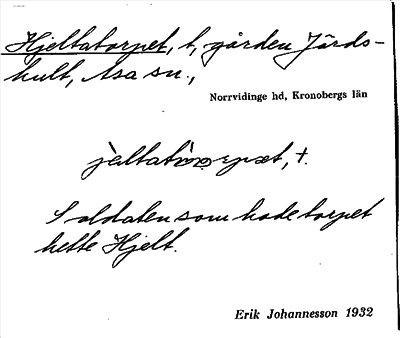 Hjeltatorpet, t, gården Järds-
hult, Asa sn.,
Norrvidinge hd, Kronobergs län
Soldaten som hade torpet
hette Hjelt.
Erik Johannesson 1932